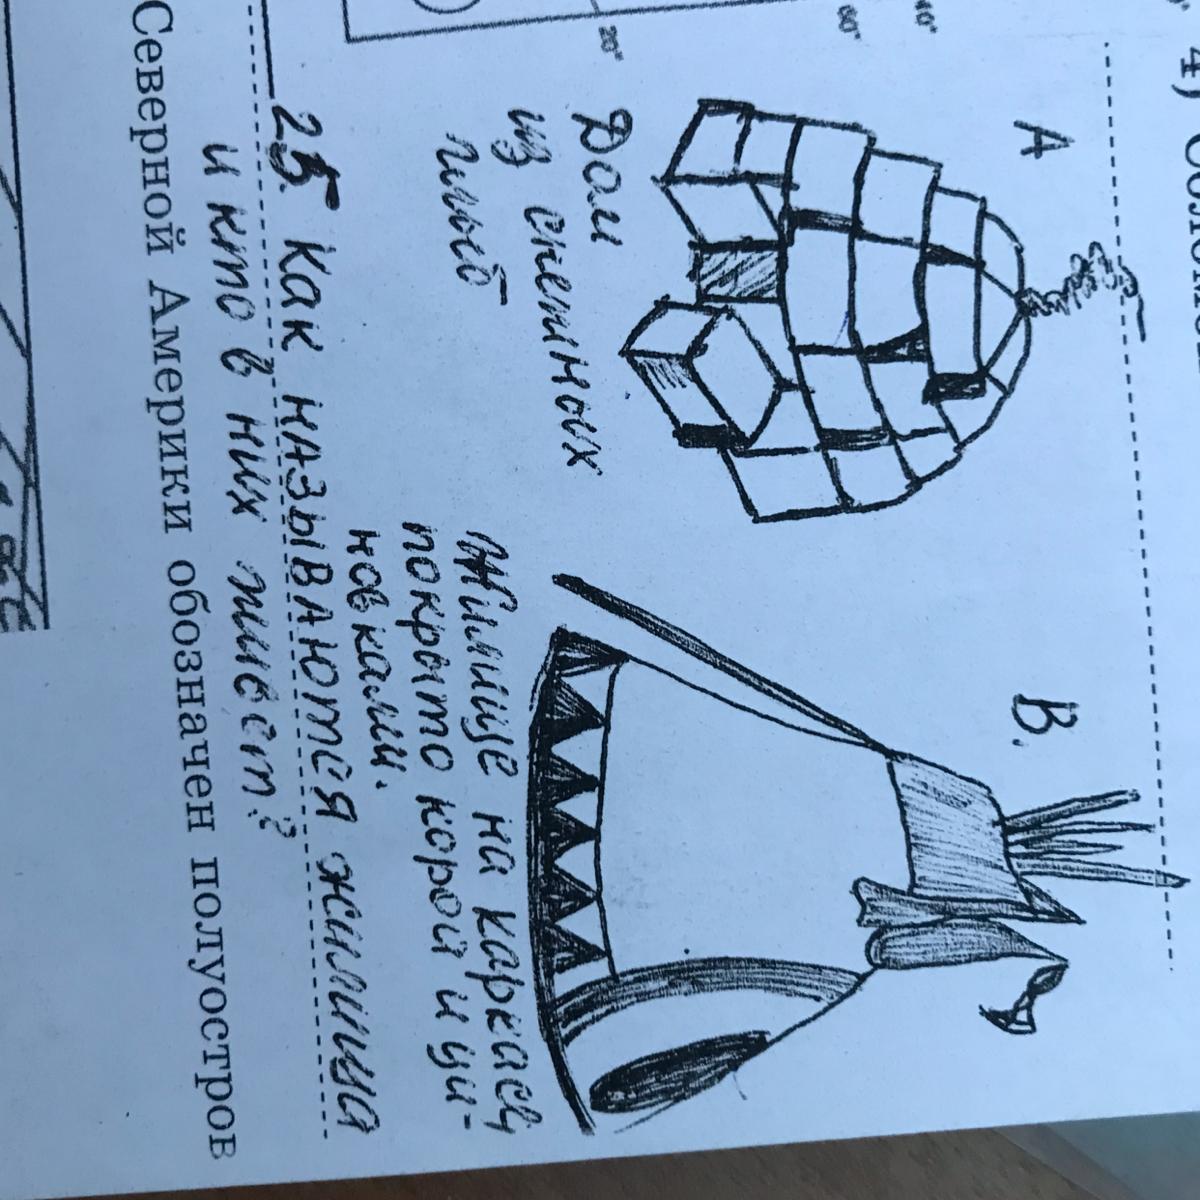 4) Обл
20°
60°
40°
А
В.
Дом
из снежных
глыб
Жилище на каркасе,
покрыто корой и ци-
новками.
25. Как называются жилища
и кто в них живёт?
Северной Америки обозначен полуостров